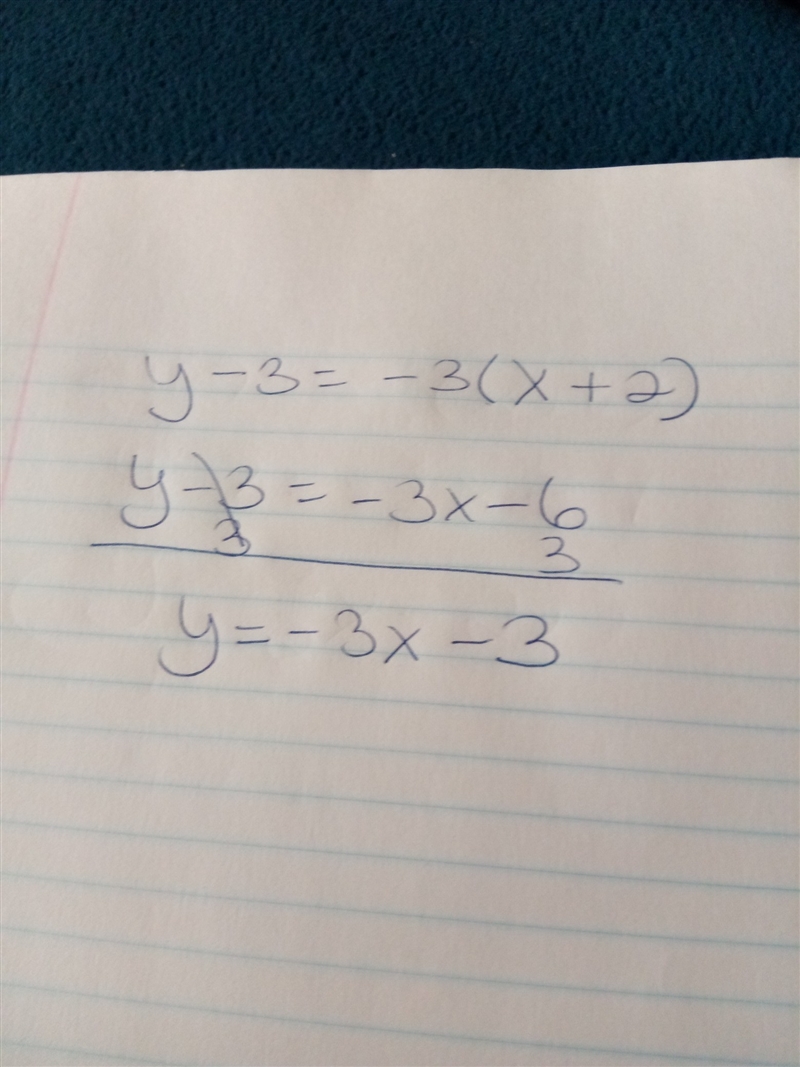 y-3=-3(x+2)
y-3=-3x-6
3 3
y=-3x-3